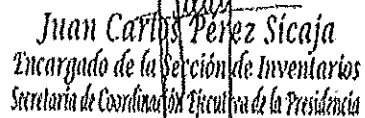 Juan Carlos Pérez Sicaja
Encargado de la Sección de Inventarios
Secretaría de Coordinación Ejecutiva de la Presidencia